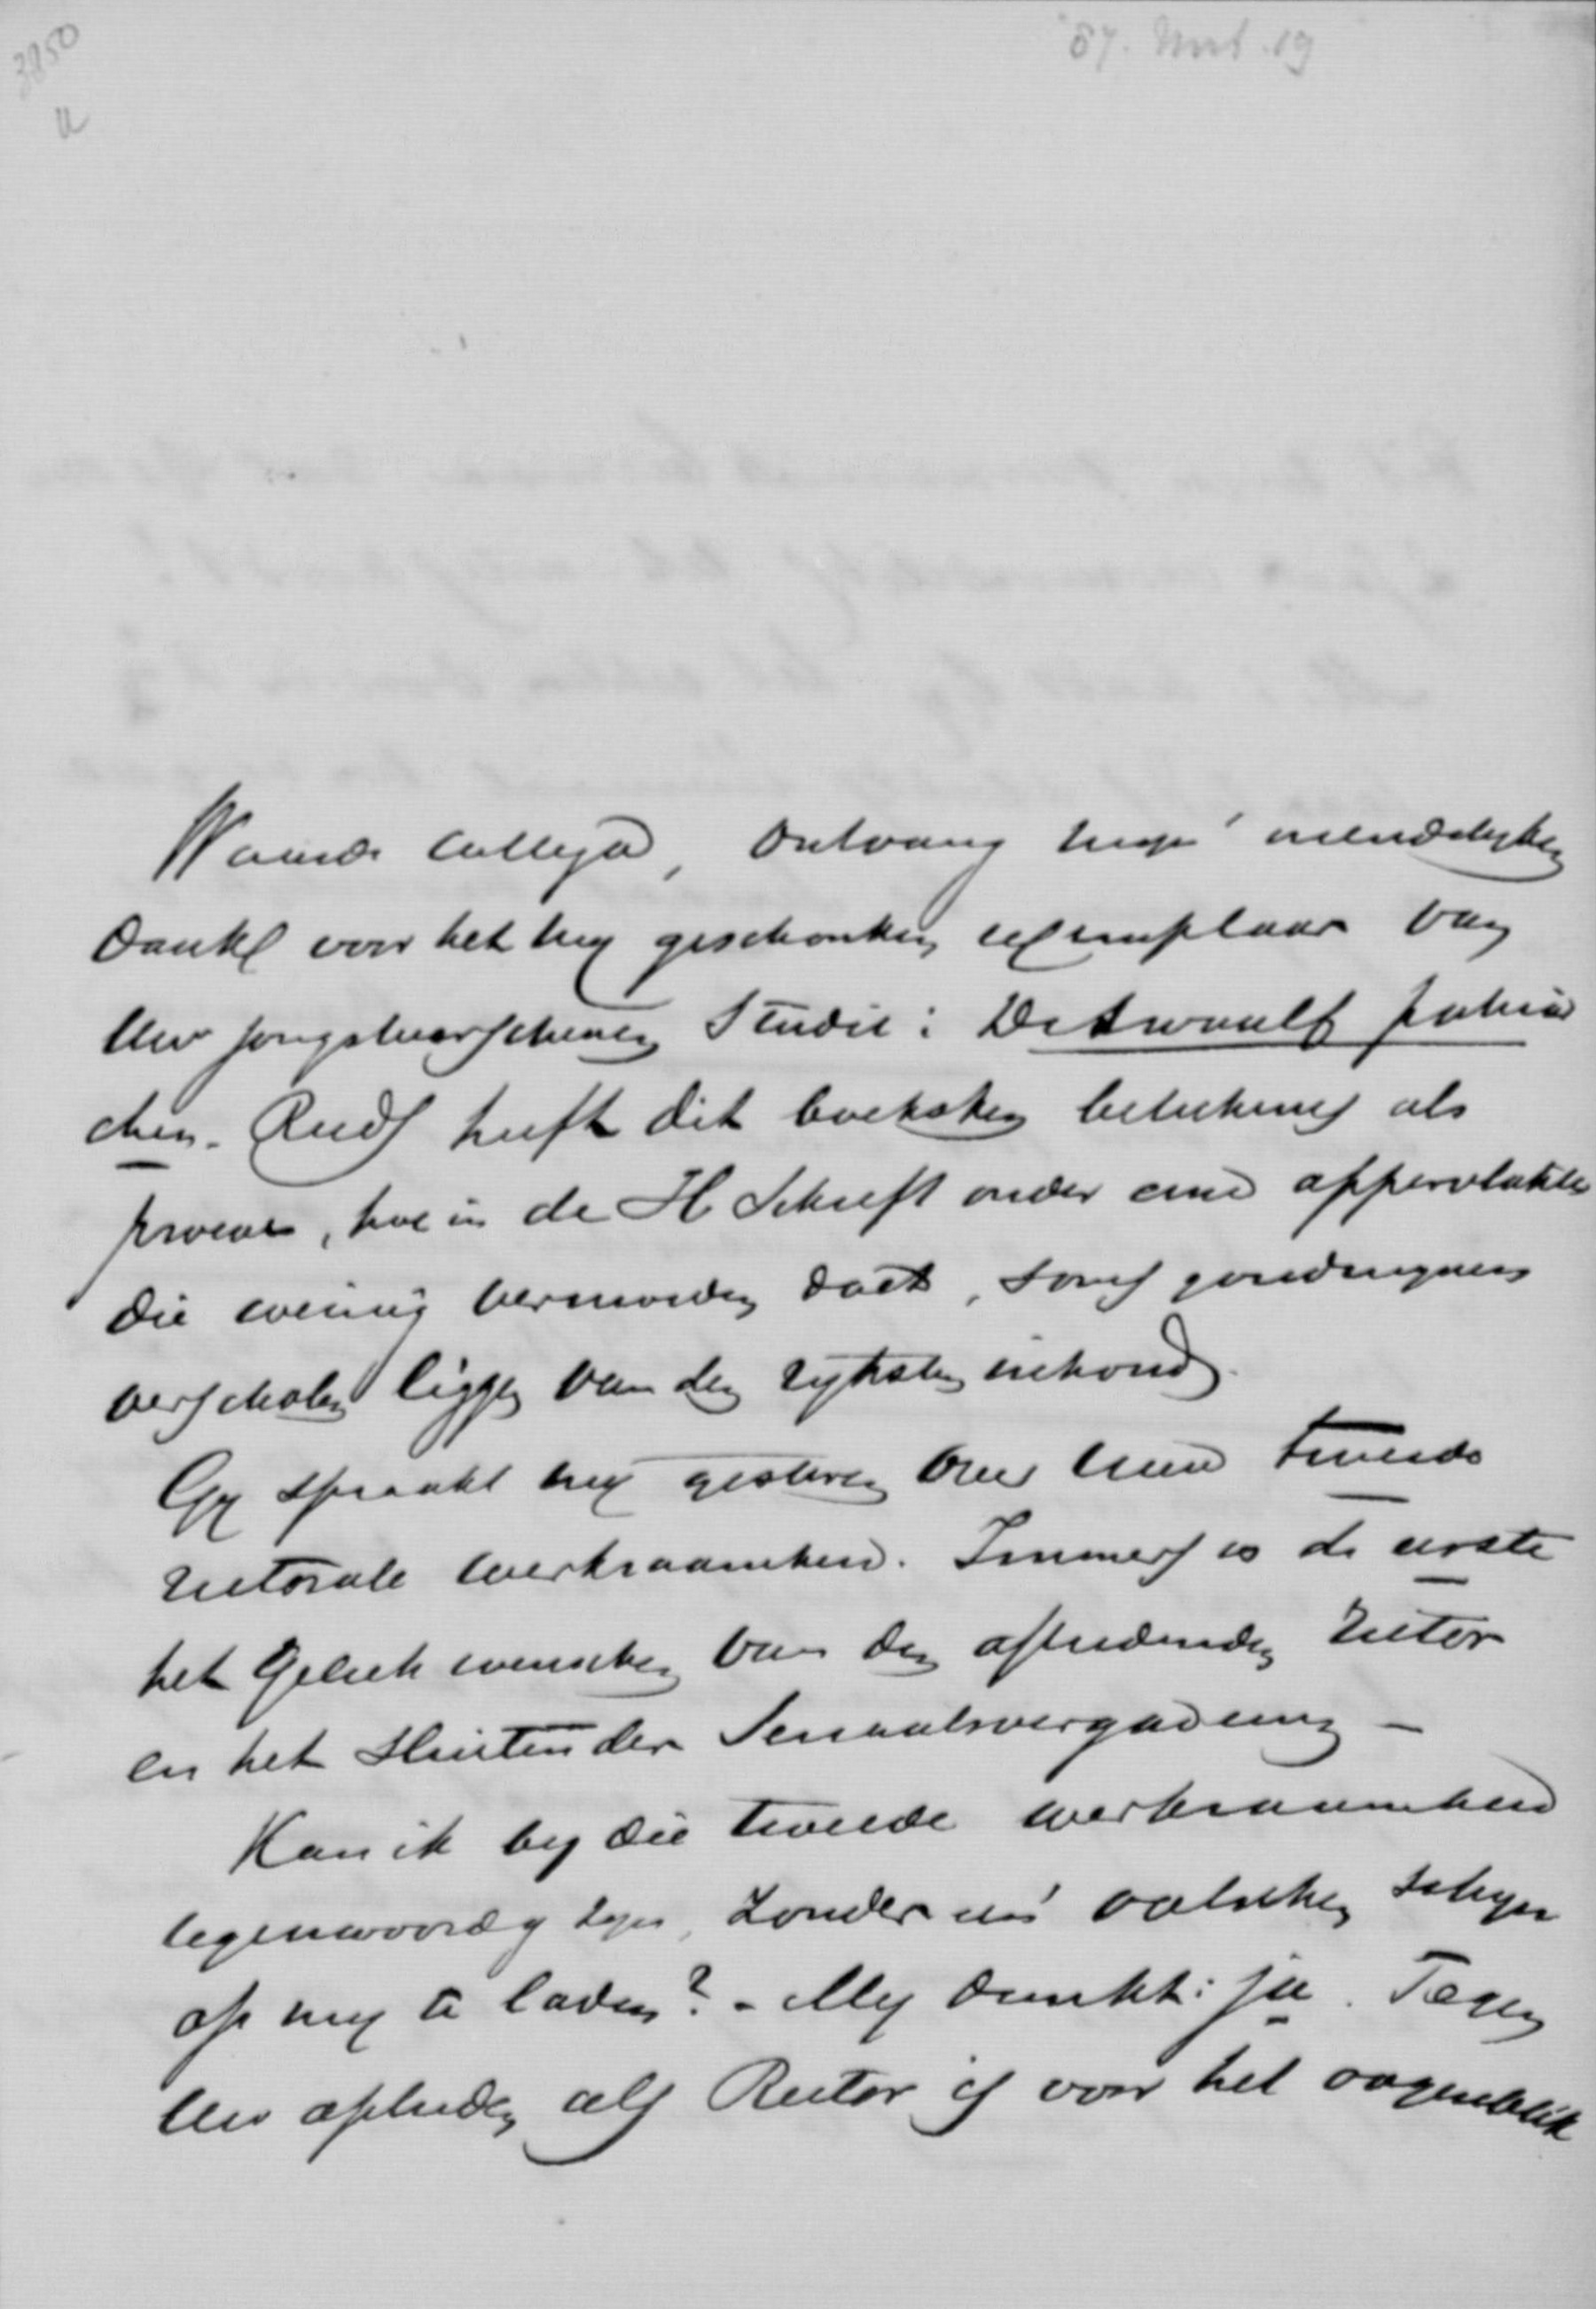 3850
57. Mrt. 19
Waarde Collega, Ontvang mijn' vriendelijken
Dank voor het mij geschonken exemplaar van
Uw jongstverschenen Studie: De twaalf patriar
chen. Reeds heeft dit boeksken beteekenis als
proeve, hoe in de H Schrift onder eene oppervlakte
die weinig vermoeden doet, soms goudmijnen
verscholen liggen van den rijksten inhoud.
Gij spraakt mij gisteren over Uwe tweede
rectorale werkzaamheid. Immers is de eerste
het geluk wenschen van den aftredenden rector
en het sluiten der Senaatsvergadering –
Kan ik bij die tweede werkzaamheid
tegenwoordig zijn, zonder een' valschen schijn
op mij te laden? – Mij dunkt: ja. Tegen
Uw optreden als Rector is voor het oogenblik